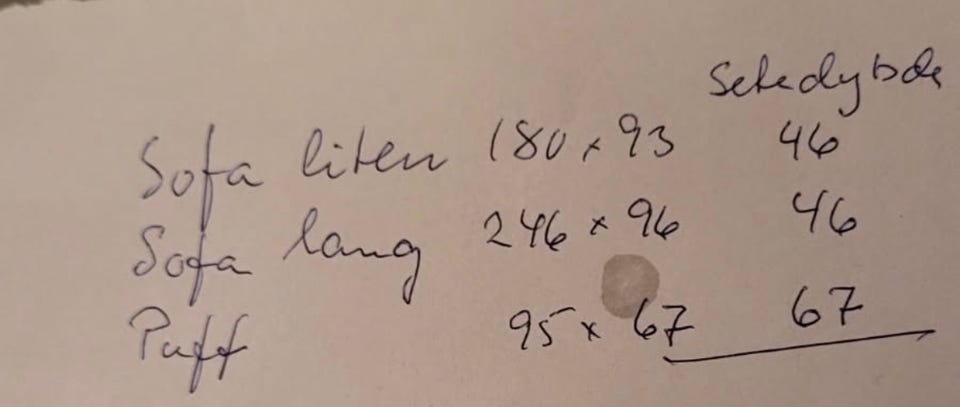 Setedybde
Sofa liten 180 x 93 46
Sofa lang 246 x 96 46
Puff 95 x 67 67